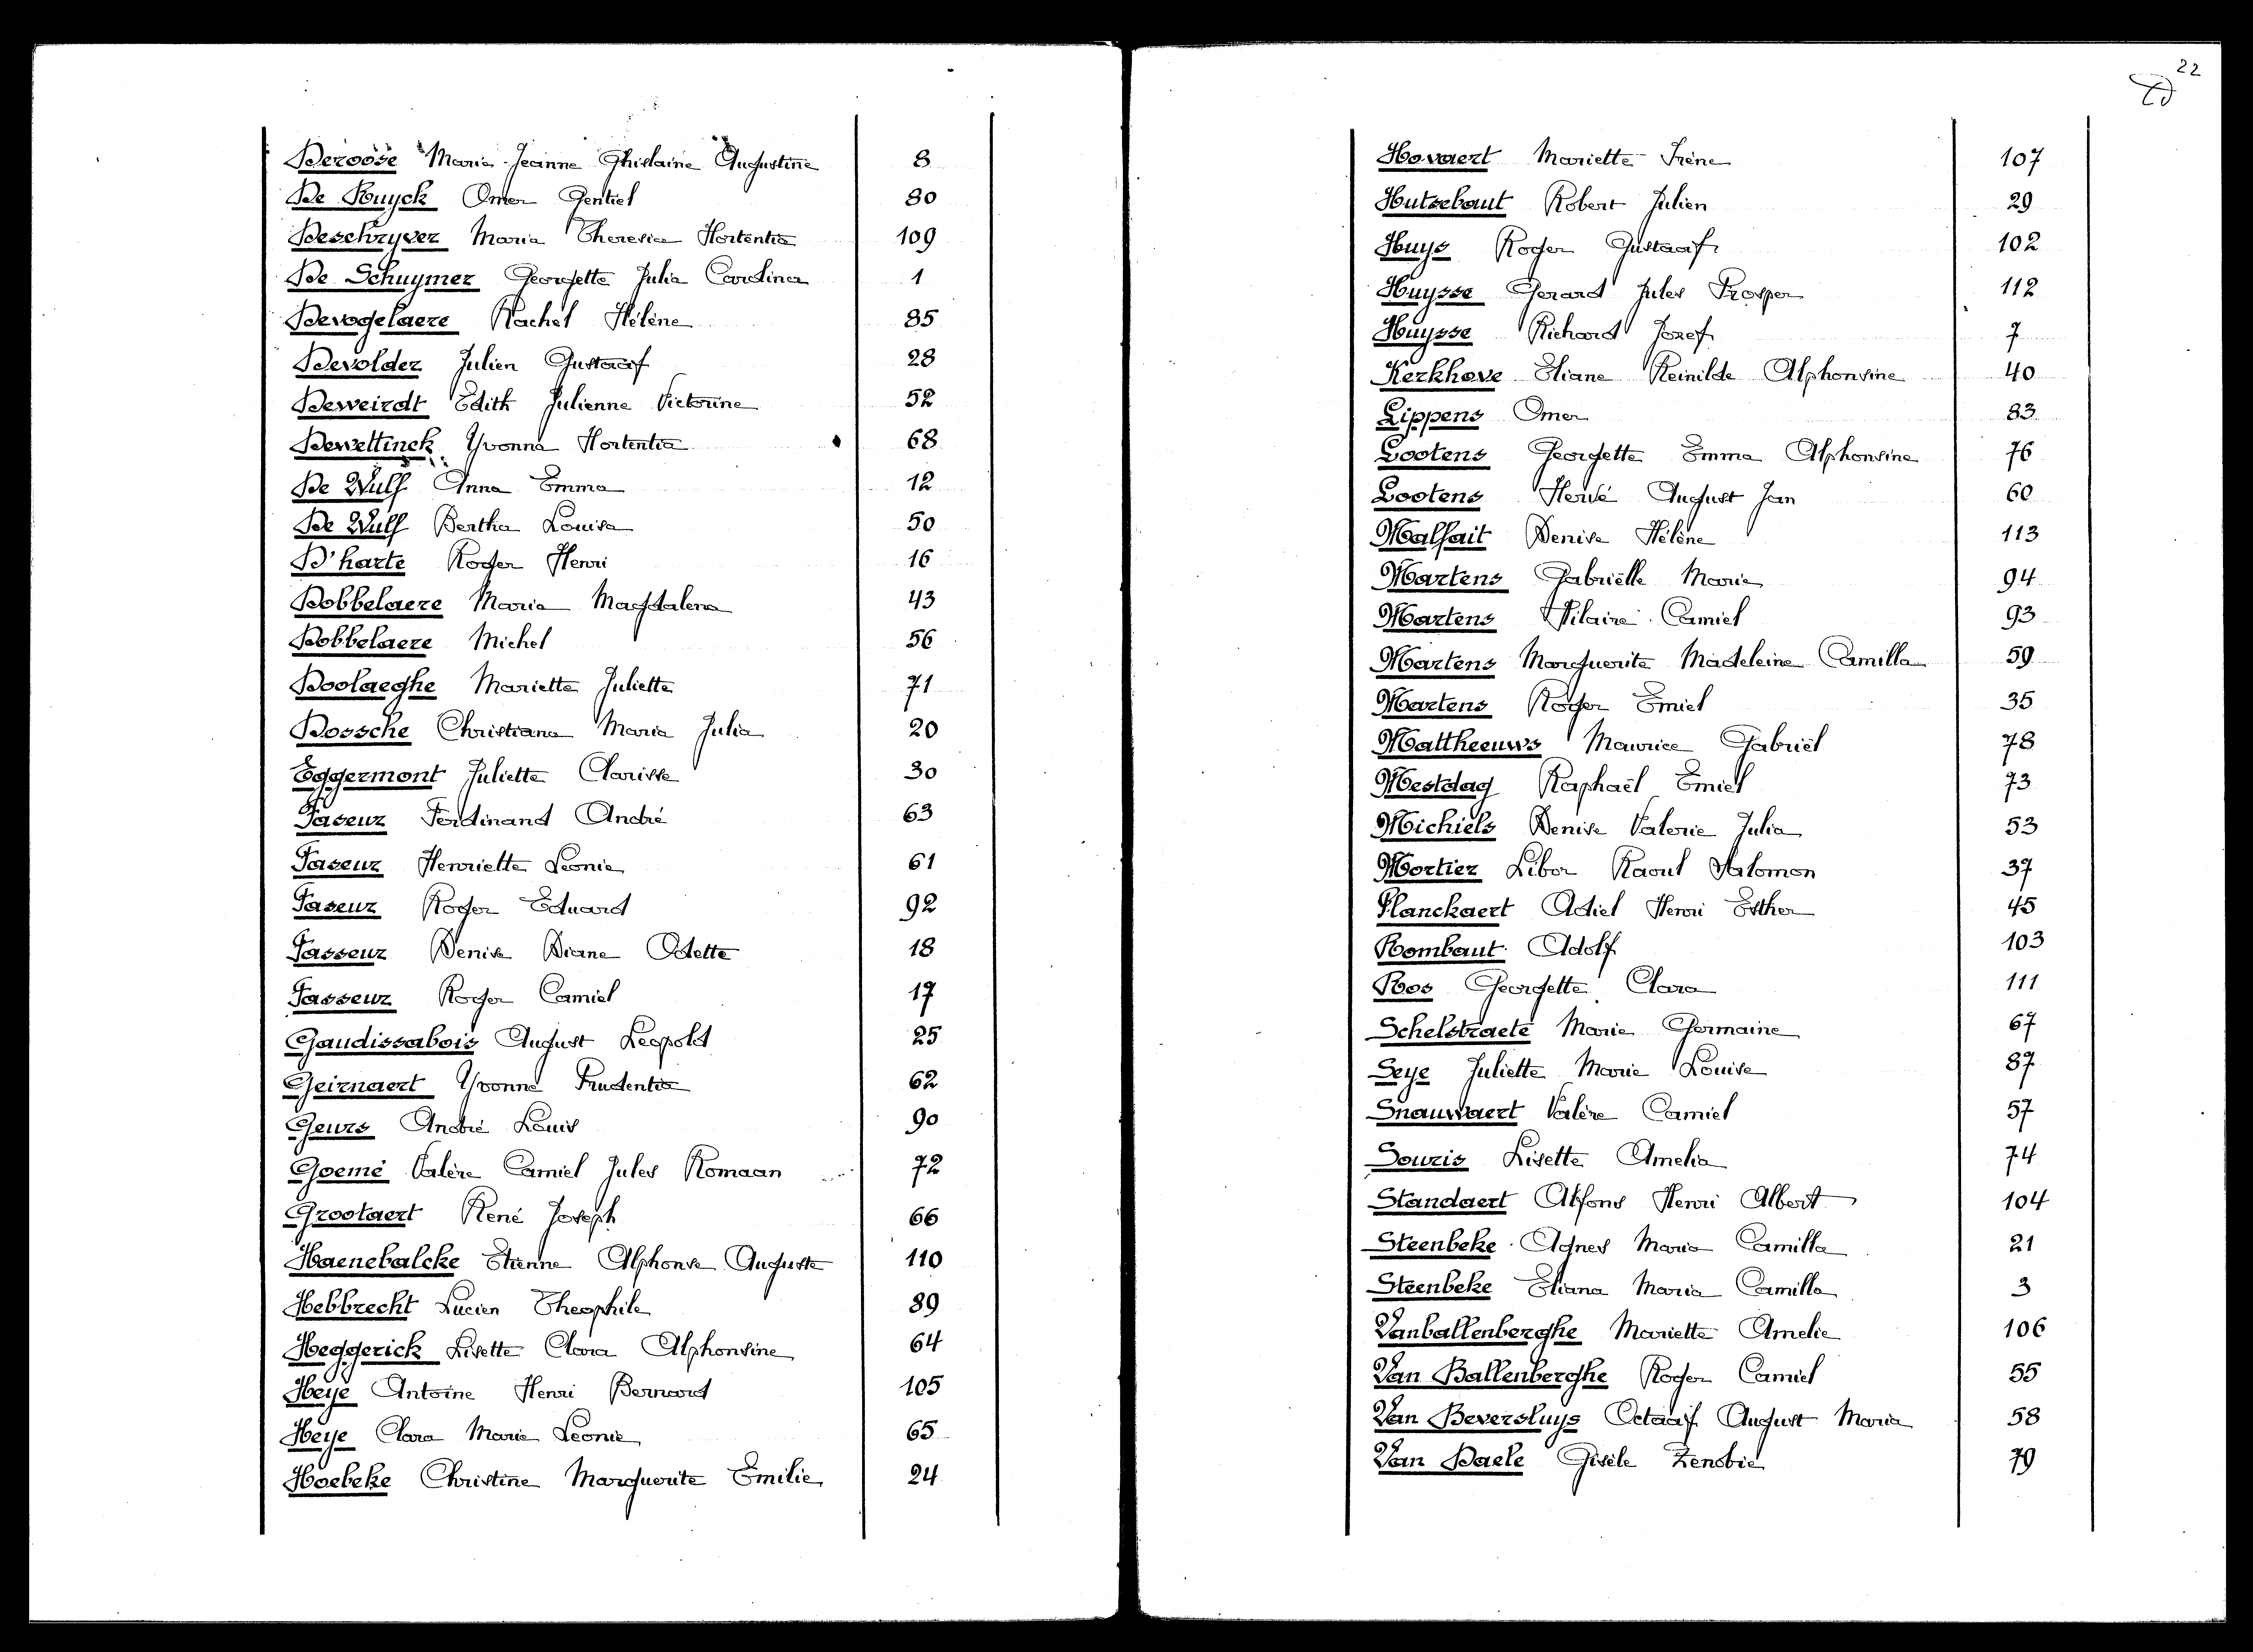 Deroose Maria-Jeanne Ghislaine Augustine 8
De Ruyck Omer Gentiel 80
Deschryver Maria Theresia Hortentia 109
De Schuymer Georgette Julia Carolina 1
Devogelaere Rachel Hélène 85
Devolder Julien Gustaaf 28
Deweirdt Edith Julienne Victorine 52
Dewettinck Yvonna Hortentia 68
De Wulf Anna Emma 12
De Wulf Bertha Louisa 50
D'harte Roger Henri 16
Dobbelaere Maria Magdalena 43
Dobbelaere Michel 56
Doolaeghe Mariette Juliette 71
Dossche Christiana Maria Julia 20
Eggermont Juliette Clarisse 30
Faseur Ferdinand André 63
Faseur Henriette Leonie 61
Faseur Roger Eduard 92
Fasseur Denise Diane Odette 18
Fasseur Roger Camiel 17
Gaudissabois August Leopold 25
Geirnaert Yvonne Prudentia 62
Geurs André Louis 90
Goemé Valère Camiel Jules Romaan 72
Grootaert René Joseph 66
Haenebalcke Etienne Alphonse Auguste 110
Hebbrecht Lucien Theophile 89
Heggerick Lisette Clara Alphonsine 64
Heye Antoine Henri Bernard 105
Heye Clara Marie Leonie 65
Hoebeke Christine Marguerite Emilie 24
22
Hovaert Mariette Irène 107
Hutsebaut Robert Julien 29
Huys Roger Gustaaf 102
Huysse Gerard Jules Prosper 112
Huysse Richard Jozef 7
Kerkhove Eliane Reinilde Alphonsine 40
Lippens Omer 83
Lootens Georgette Emma Alphonsine 76
Lootens Hervé August Jan 60
Malfait Denise Hélène 113
Martens Gabriëlle Marie 94
Martens Hilaire Camiel 93
Martens Marguerite Madeleine Camilla 59
Martens Roger Emiel 35
Mattheeuws Maurice Gabriël 78
Mestdag Raphaël Emiel 73
Michiels Denise Valerie Julia 53
Mortier Libor Raoul Salomon 37
Planckaert Adiel Henri Esther 45
Rombaut Adolf 103
Roos Georgette Clara 111
Schelstraete Marie Germaine 67
Seye Juliette Marie Louise 87
Snauwaert Valère Camiel 57
Souris Lisette Amelia 74
Standaert Alfons Henri Albert 104
Steenbeke Agnes Maria Camilla 21
Steenbeke Eliana Maria Camilla 3
Vanballenberghe Mariette Amelie 106
Van Ballenberghe Roger Camiel 55
Van Beversluys Octaaf August Maria 58
Van Daele Gisèle Zenobie 79